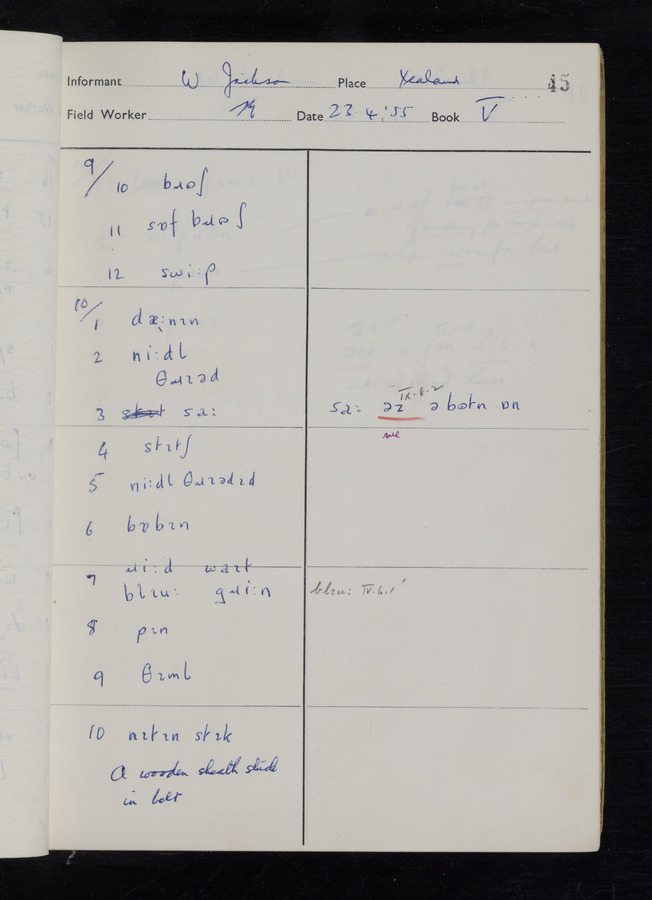 Informant W Jackson Place Yealand 45
Field Worker Date 23.4.'55 Book V
9/10 bɹʊʃ
11 sɒf bɹʊʃ
12 swi:p
10/1 dæ:nɪn
2 ni:dl
θɹɪəd
3 sɑ: sɑ: əz ə bʊtn ɒn
IX.8.2
me
4 stɪtʃ
5 ni:dl θɹɪədɪd
6 bɒbɪn
7 ɹi:d waɪt
blɪu: gɹi:n blɪu: IV.6.1
8 pɪn
9 θɪml
10 nɪtɪn stɪk
A wooden sheath stuck
in belt